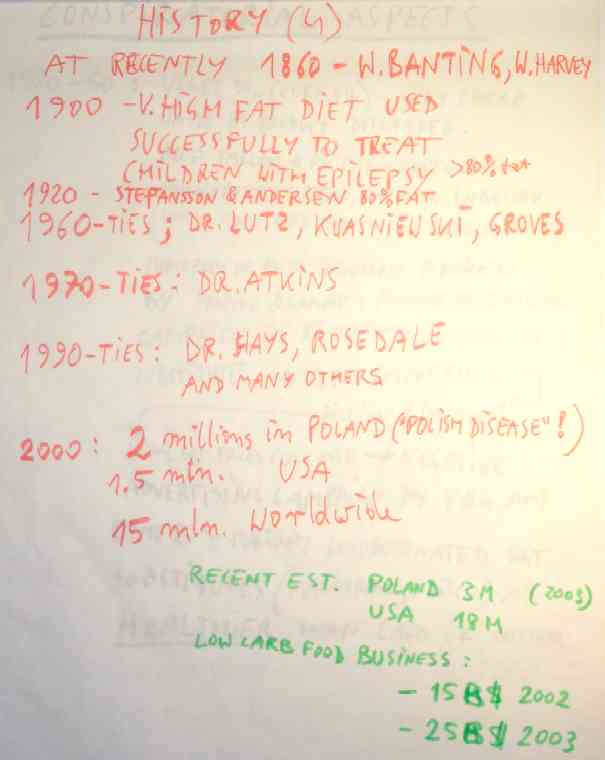 HISTORY (4)
AT RECENTLY 1860 - W. BANTING, W. HARVEY
1900 - V. HIGH FAT DIET USED
SUCCESSFULLY TO TREAT
CHILDREN WITH EPILEPSY >80% fat
1920 - STEFANSSON & ANDERSEN 80% FAT
1960-TIES ; DR. LUTZ, KWASNIEWSKI, GROVES
1970-TIES : DR. ATKINS
1990-TIES : DR. HAYS, ROSEDALE
AND MANY OTHERS
2000 : 2 millions in POLAND ("POLISH DISEASE" !)
1.5 mln. USA
15 mln. Worldwide
RECENT EST. POLAND 3M (2003)
USA 18M
LOW CARB FOOD BUSINESS :
- 15 B$ 2002
- 25 B$ 2003